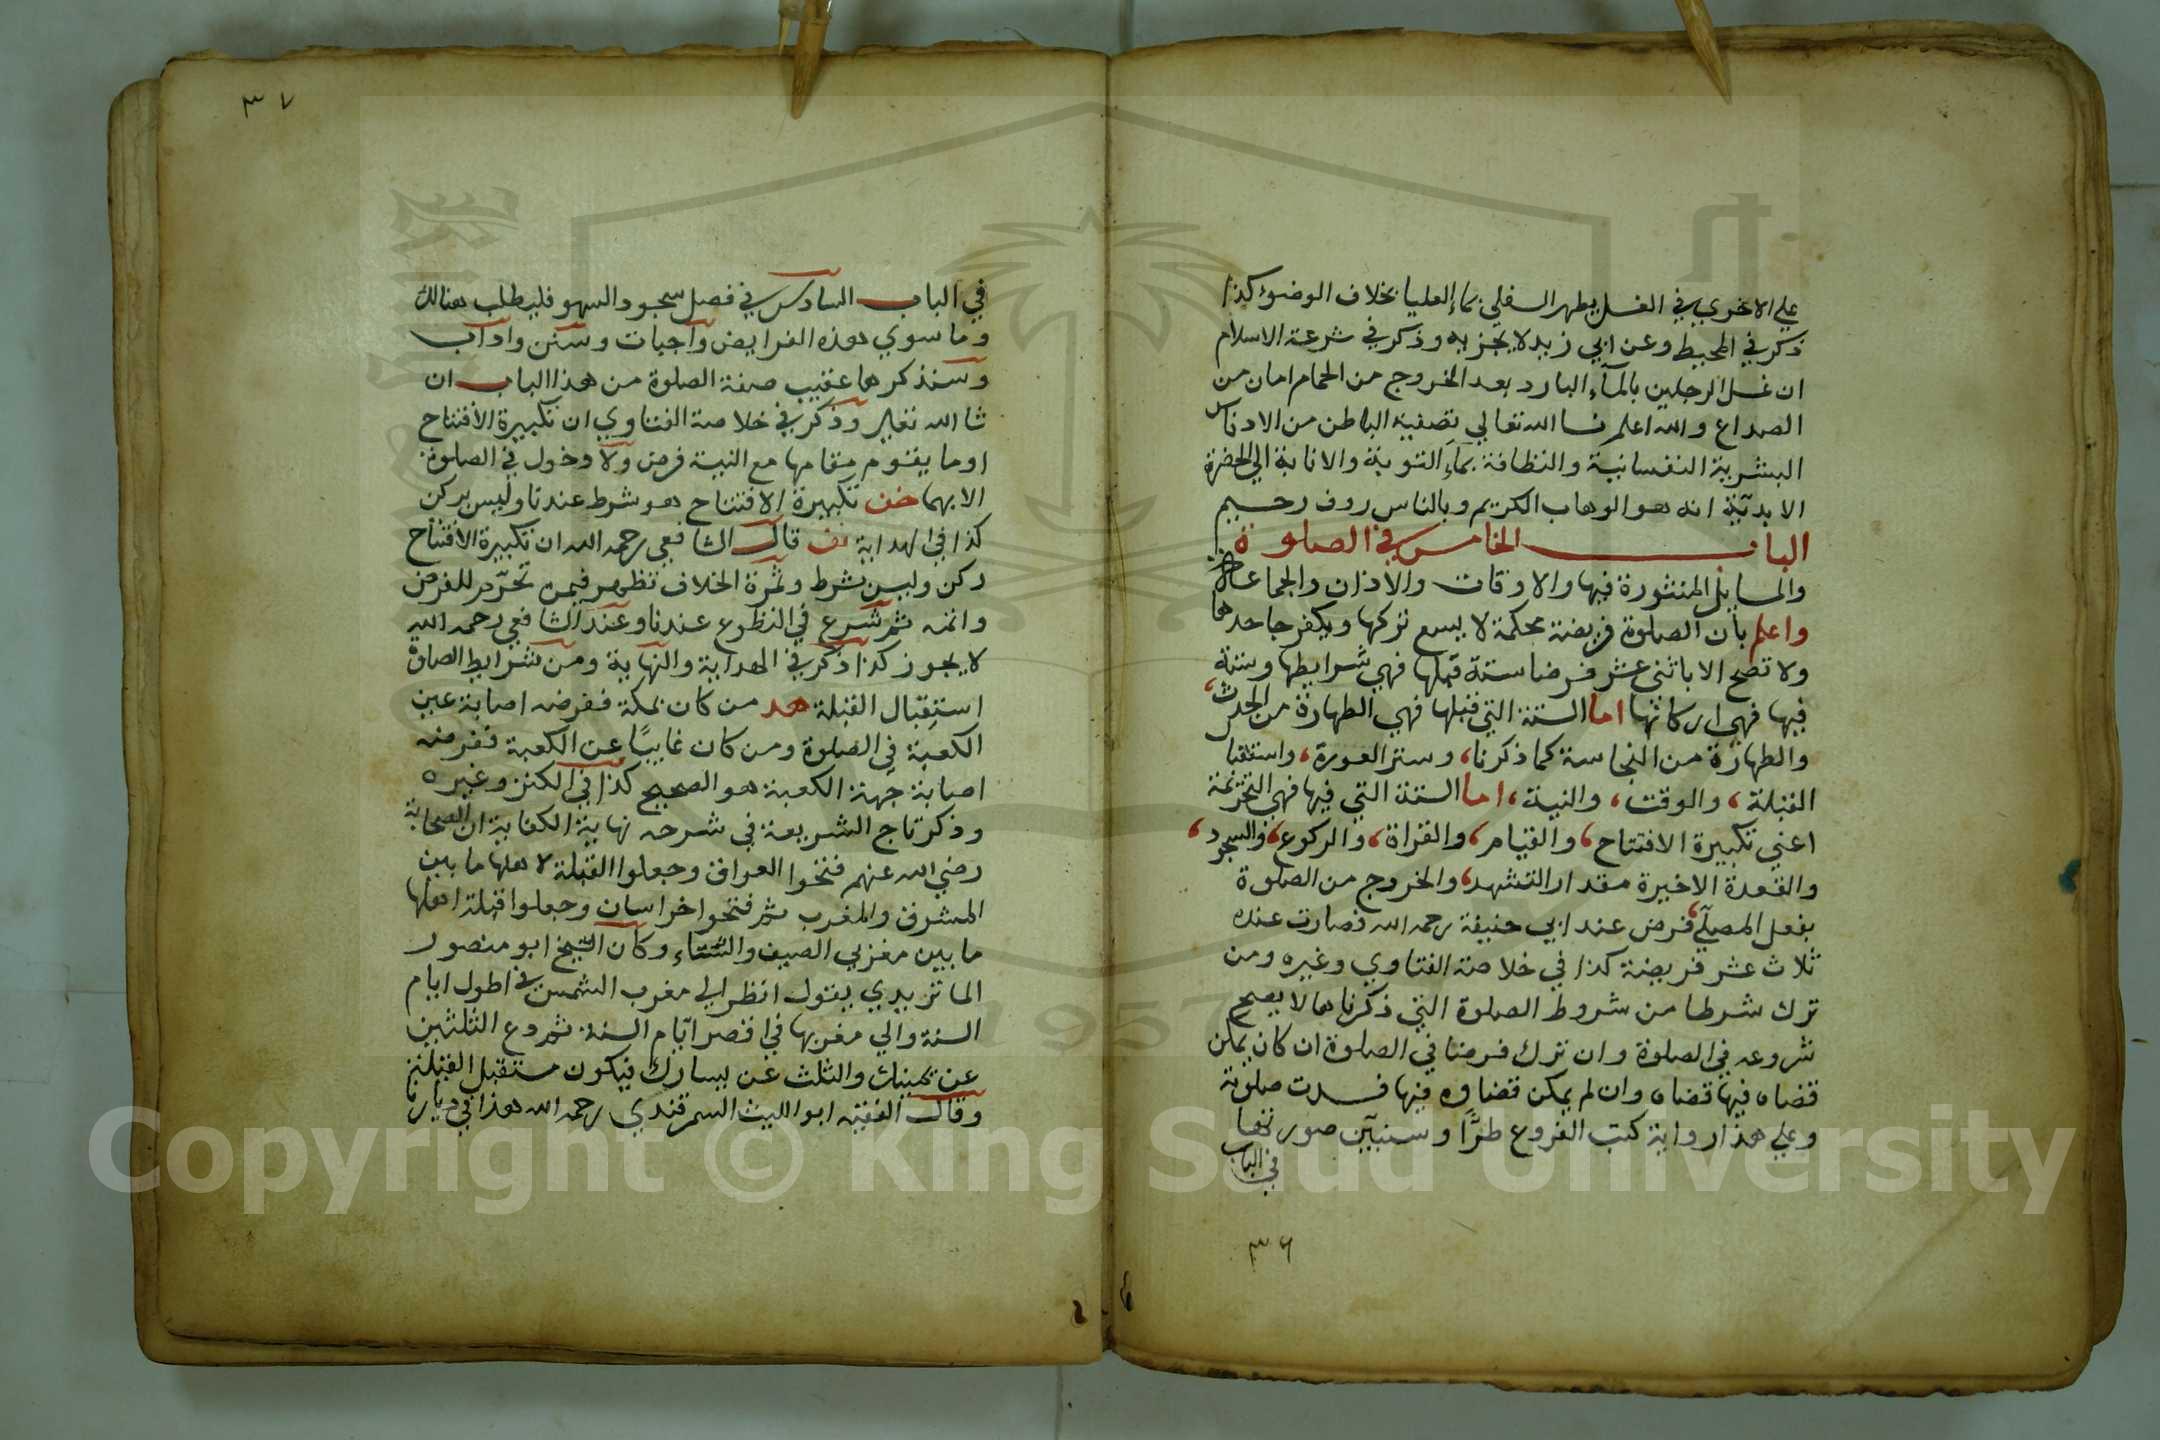 علي الاخري في الغسل يطهر السفلي بماء العليا بخلاف الوضوء كذا
ذكر في المحيط وعن ابي زيد لا يجزيه وذكر في شرعة الاسلام
ان غسل الرجلين بالمآء البارد بعد الخروج من الحمام امان من
الصداع والله اعلم نسا الله تعالي تصفية الباطن من الادناس
البشرية النفسانية والنظافة بمآء التوبة والانابة الي الحضرة
الابديّة انه هو الوهاب الكريم وبالناس روف رحيم
الباب الخامس في الصلوة
والمسايل المنثورة فيها والاوقات والاذان والجماعة
واعلم بان الصلوة فريضة محكمة لا يسع تركها ويكفر جاحدها
ولا تصح الا باثني عشر فرضا ستة قبلها فهي شرايطها وستة
فيها فهي اركانها اما الستة التي قبلها فهي الطهارة من الحدث
والطهارة من النجاسة كما ذكرنا، وستر العورة، واستقبا
القبلة، والوقت، والنية، اما الستة التي فيها فهي التحريمة
اعني تكبيرة الافتتاح، والقيام، والقراة، والركوع، والسجود،
والقعدة الاخيرة مقدار التشهد، والخروج من الصلوة
بفعل المصلّي فرض عند ابي حنيفة رحمه الله فصارت عنده
ثلاث عشر فريضة كذا في خلاصة الفتاوي وغيره ومن
ترك شرطا من شروط الصلوة التي ذكرناها لا يصح
شروعه في الصلوة وان ترك فرضا في الصلوة ان كان يمكن
قضاه فيها قضاه وان لم يمكن قضاوه فيها فسدت صلوته
وعلي هذا رواية كتب الفروع طرًّا وسنبيّن صورتها
في الباب
٣٦
٣٧
في الباب السادس في فصل سجود السهو فليطلب هنالك
وما سوي هذه الفرايض واجبات وسنن واداب
وسنذكرها عقيب صفة الصلوة من هذا الباب ان
شا الله تعالي وذكر في خلاصة الفتاوي ان تكبيرة الافتتاح
او ما يقوم مقامها مع النية فرض ولا دخول في الصلوة
الا بهما تكبيرة الافتتاح هو شرط عندنا وليس بركن
كذا في الهداية قال الشافعي رحمه الله ان تكبيرة الافتتاح
ركن وليس بشرط وثمرة الخلاف تظهر فيمن تحرّم للفرض
واتمه ثم شرع في التطوع عندنا وعند الشافعي رحمه الله
لا يجوز كذا ذكر في الهداية والنهاية ومن شرايط الصلوة
استقبال القبلة هد من كان بمكة ففرضه اصابة عين
الكعبة في الصلوة ومن كان غايبًا عن الكعبة ففرضه
اصابة جهة الكعبة هو الصحيح كذا في الكنز وغيره
وذكر تاج الشريعة في شرحه نهاية الكفاية ان الصحابة
رضي الله عنهم فتحوا العراق وجعلوا القبلة لاهلها ما بين
المشرق والمغرب ثم فتحوا خراسان وجعلوا قبلة اهلها
ما بين مغربي الصيف والشتاء وكان الشيخ ابو منصور
الماتريدي يقول انظر الي مغرب الشمس في اطول ايام
السنة والي مغربها في اقصر ايّام السنة ثم دع الثلثين
عن يمينك والثلث عن يسارك فيكون مستقبل القبلة
وقال الفقيه ابو الليث السمرقندي رحمه الله هذا في ديارنا
Copyright © King Saud University
1957